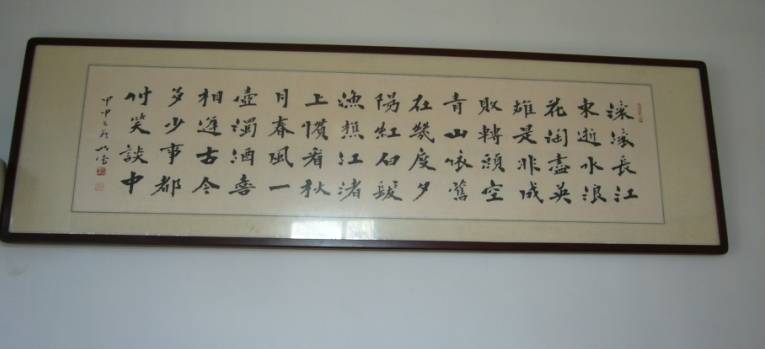 滾滾長江
東逝水浪
花淘盡英
雄是非成
敗轉頭空
青山依舊
在幾度夕
陽紅白髮
漁樵江渚
上慣看秋
月春風一
壺濁酒喜
相逢古今
多少事都
付笑談中
甲申